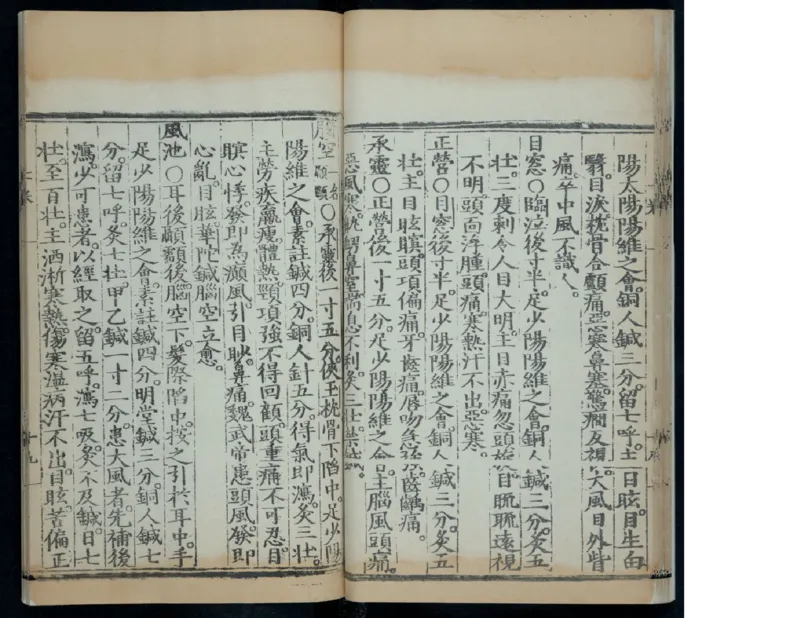 陽太陽陽維之會。銅人鍼三分。留七呼。主目眩。目生白
翳。目淚。枕骨合顱痛。惡寒鼻塞。驚癇反視。大風目外眥
痛。卒中風不識人。
目窓○臨泣後寸半。足少陽陽維之會。銅人鍼三分。灸五
壯。三度刺。令人目大明。主目赤痛。忽頭旋。目䀮䀮遠視
不明。頭面浮腫。頭痛。寒熱汗不出惡寒。
正營○目窓後寸半。足少陽陽維之會。銅人鍼三分。灸五
壯。主目眩瞑。頭項偏痛。牙齒痛。唇吻急強。齒齲痛。
承靈○正營後一寸五分。足少陽陽維之會。主腦風頭痛。
惡風寒。鼻窒喘息不利。灸三壯。禁鍼。
腦空一名顳顬○承靈後一寸五分。俠玉枕骨下陷中。足少陽
陽維之會。素註鍼四分。銅人針五分。得氣即瀉。灸三壯。
主勞疾羸瘦。體熱。頸項強不得回顧。頭重痛不可忍。目
瞑心悸。發即為癲風。引目眇。鼻痛。魏武帝患頭風。發即
心亂。目眩。華陀鍼腦空立愈。
風池○耳後顳顬後腦空下。髮際陷中。按之引於耳中。手
足少陽陽維之會。素註鍼四分。明堂鍼三分。銅人鍼七
分。留七呼。灸七壯。甲乙鍼一寸二分。患大風者。先補後
瀉。少可患者。以經取之。留五呼。瀉七吸。灸不及鍼。日七
壯。至百壯。主洒淅寒熱。傷寒溫病汗不出。目眩。苦偏正